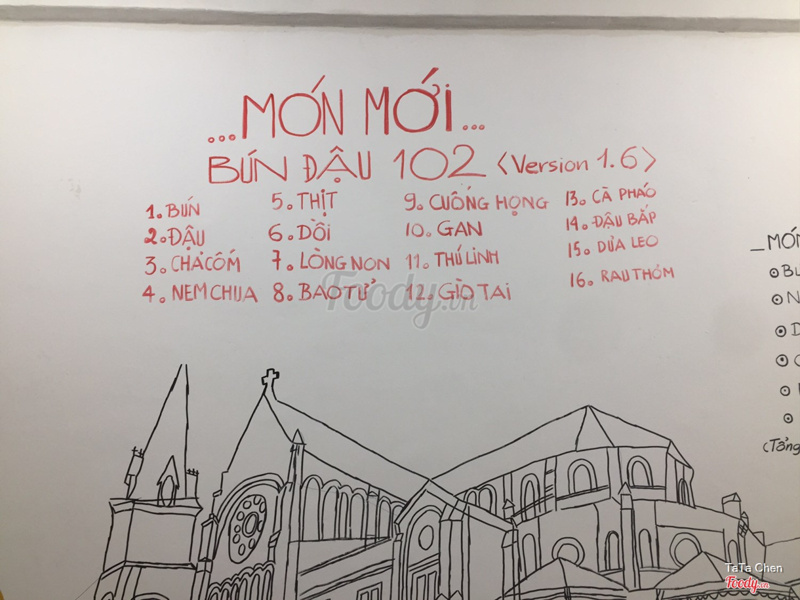 ...MÓN MỚI...
BÚN ĐẬU 102 <Version 1.6>
1. BÚN
2. ĐẬU
3. CHẢ CỐM
4. NEM CHUA
5. THỊT
6. DỒI
7. LÒNG NON
8. BAO TỬ
9. CUỐNG HỌNG
10. GAN
11. THỦ LINH
12. GIÒ TAI
13. CÀ PHÁO
14. ĐẬU BẮP
15. DƯA LEO
16. RAU THƠM
_MÓN
(Tổng
Foody.vn
TaTa Chen
Foody.vn